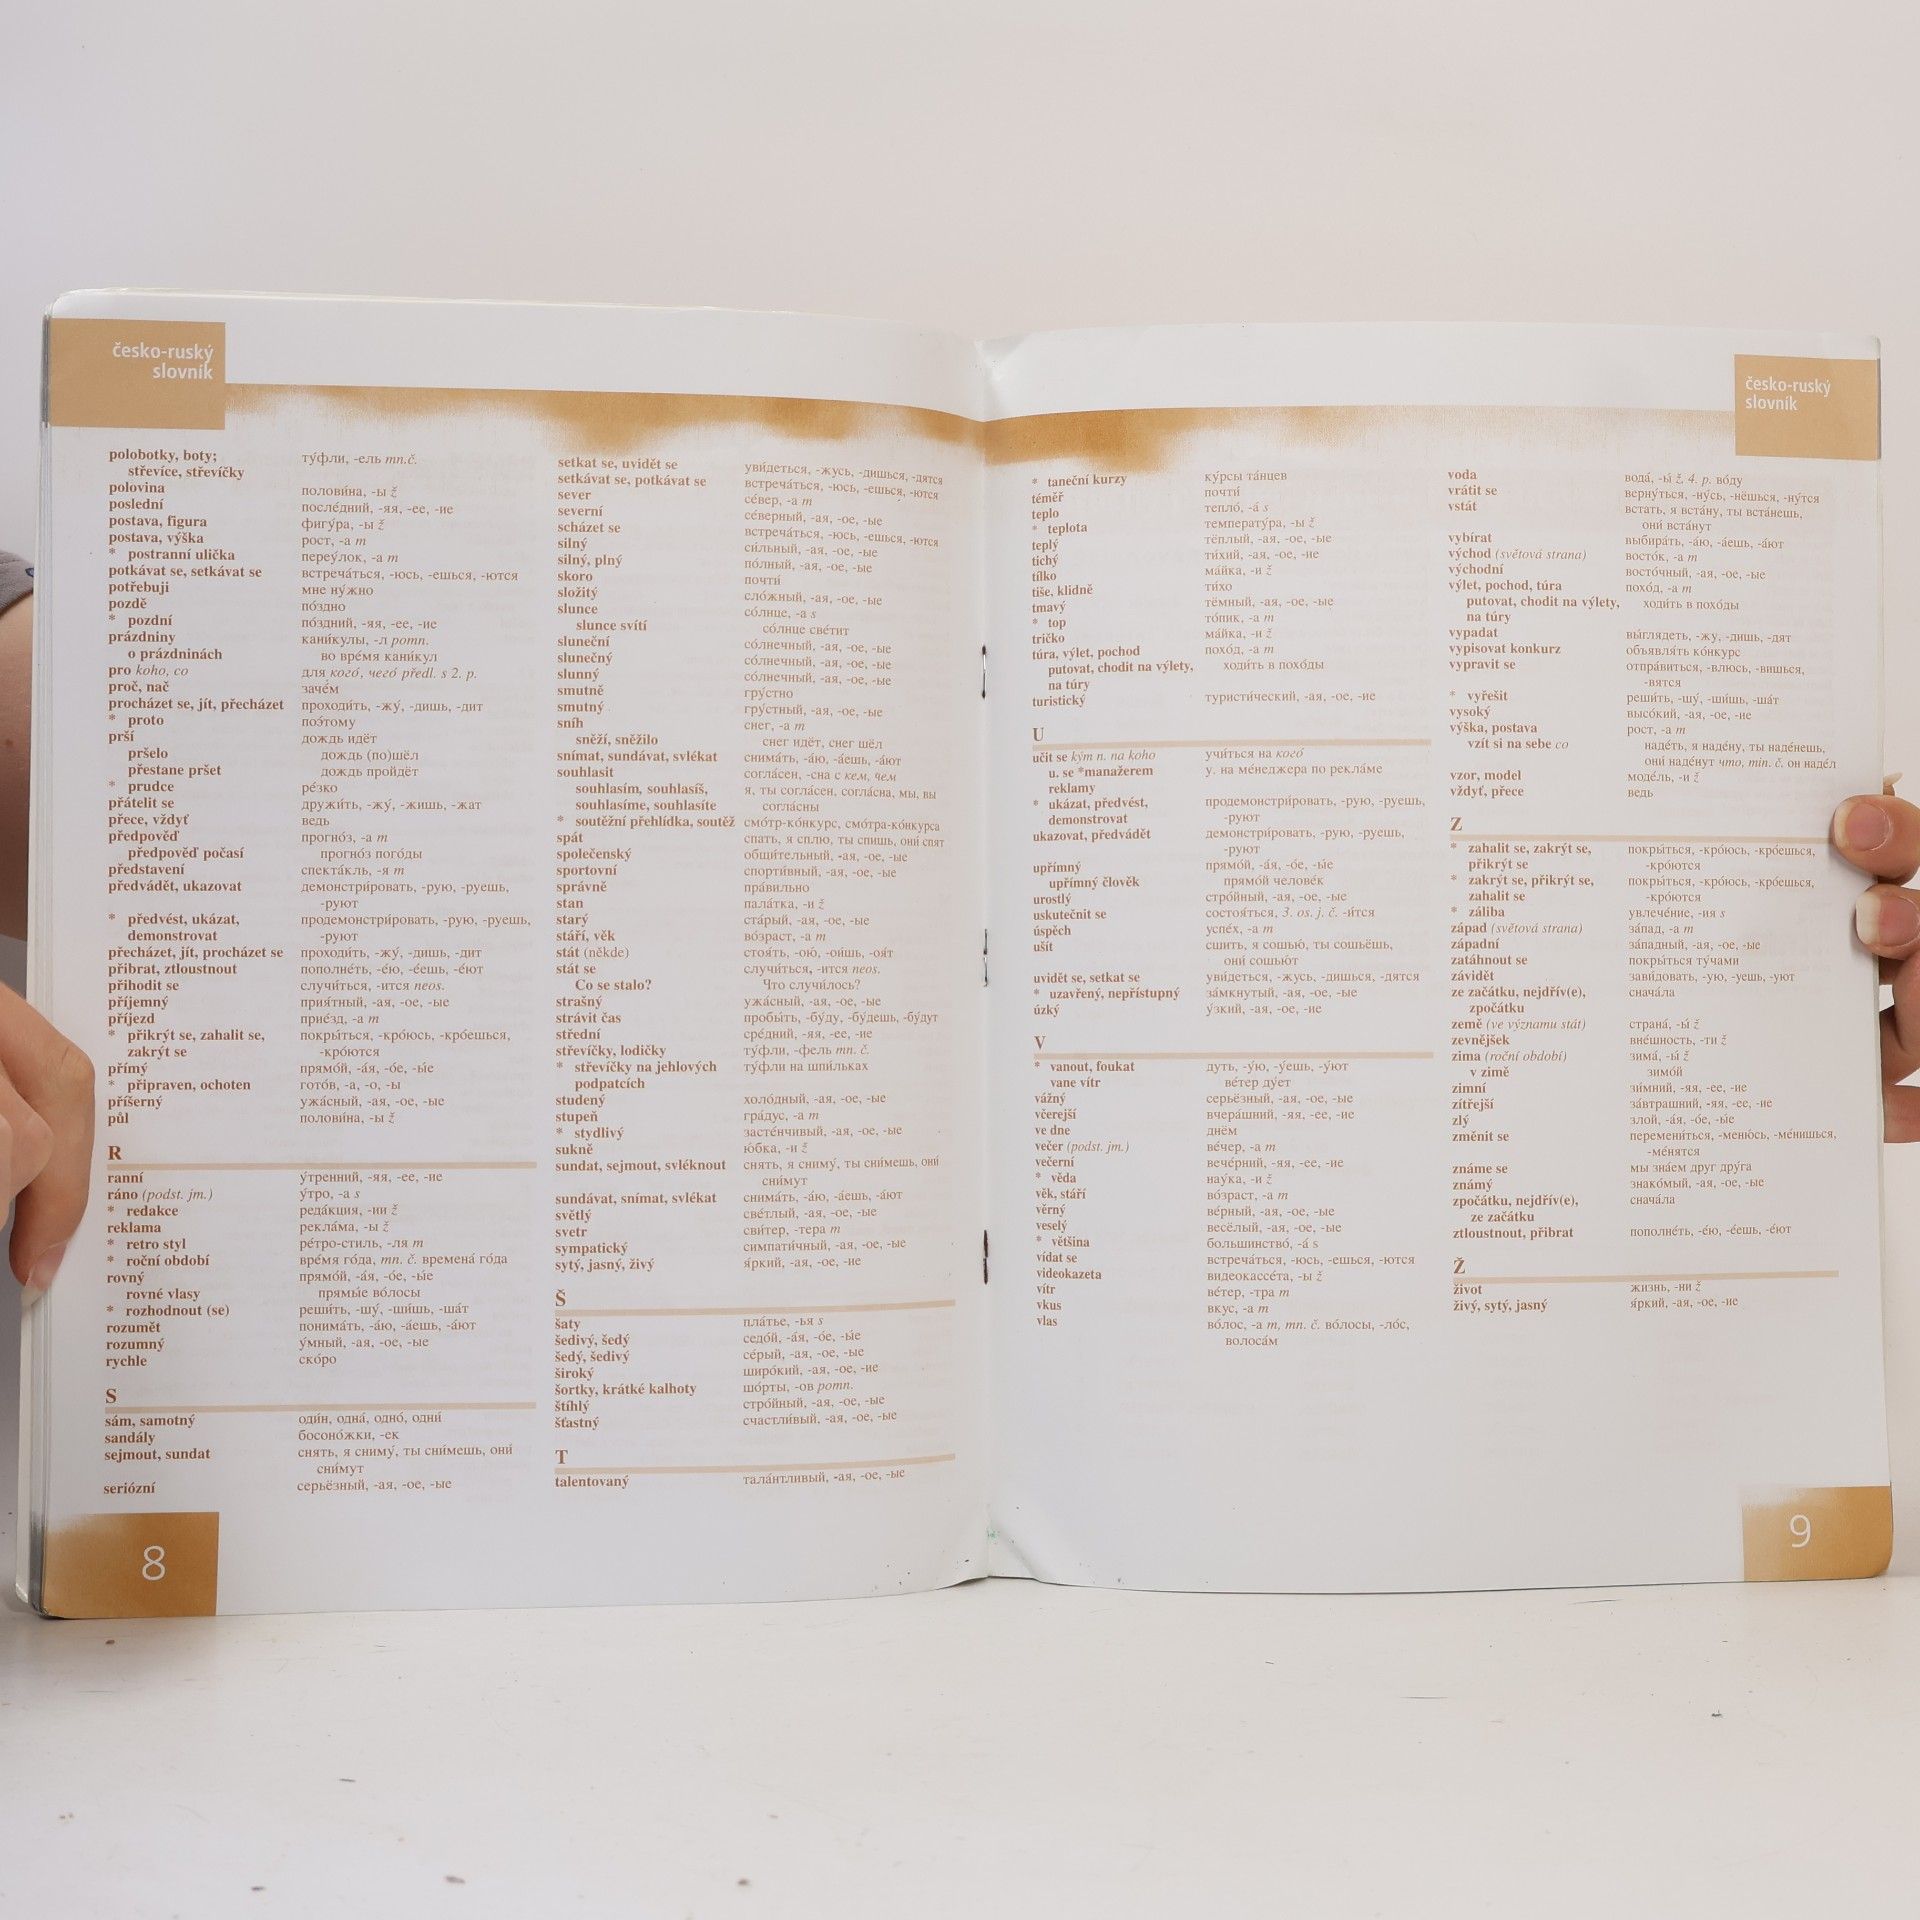 česko-ruský
slovník
polobotky, boty; ту́фли, -ель mn.č.
střevíce, střevíčky
polovina полови́на, -ы ž
poslední после́дний, -яя, -ее, -ие
postava, figura фигу́ра, -ы ž
postava, výška рост, -а m
* postranní ulička переу́лок, -а m
potkávat se, setkávat se встреча́ться, -юсь, -ешься, -ются
potřebuji мне ну́жно
pozdě по́здно
* pozdní по́здний, -яя, -ее, -ие
prázdniny кани́кулы, -л pomn.
o prázdninách во вре́мя кани́кул
pro koho, co для кого́, чего́ předl. s 2. p.
proč, nač заче́м
procházet se, jít, přecházet проходи́ть, -жу́, -дишь, -дит
* proto поэ́тому
prší дождь идёт
pršelo дождь (по)шёл
přestane pršet дождь пройдёт
* prudce ре́зко
přátelit se дружи́ть, -жу́, -жишь, -жат
přece, vždyť ведь
předpověď прогно́з, -а m
předpověď počasí прогно́з пого́ды
představení спекта́кль, -я m
předvádět, ukazovat демонстри́ровать, -рую, -руешь,
-руют
* předvést, ukázat, продемонстри́ровать, -рую, -руешь,
demonstrovat -руют
přecházet, jít, procházet se проходи́ть, -жу́, -дишь, -дит
přibrat, ztloustnout пополне́ть, -е́ю, -е́ешь, -е́ют
přihodit se случи́ться, -ится neos.
příjemný прия́тный, -ая, -ое, -ые
příjezd прие́зд, -а m
* přikrýt se, zahalit se, покры́ться, -кро́юсь, -кро́ешься,
zakrýt se -кро́ются
přímý прямо́й, -а́я, -о́е, -ы́е
* připraven, ochoten гото́в, -а, -о, -ы
příšerný ужа́сный, -ая, -ое, -ые
půl полови́на, -ы ž
R
ranní у́тренний, -яя, -ее, -ие
ráno (podst. jm.) у́тро, -а s
* redakce реда́кция, -ии ž
reklama рекла́ма, -ы ž
* retro styl ре́тро-стиль, -ля m
* roční období вре́мя го́да, mn. č. времена́ го́да
rovný прямо́й, -а́я, -о́е, -ы́е
rovné vlasy прямы́е во́лосы
* rozhodnout (se) реши́ть, -шу́, -ши́шь, -ша́т
rozumět понима́ть, -а́ю, -а́ешь, -а́ют
rozumný у́мный, -ая, -ое, -ые
rychle ско́ро
S
sám, samotný оди́н, одна́, одно́, одни́
sandály босоно́жки, -ек
sejmout, sundat снять, я сниму́, ты сни́мешь, они́
сни́мут
seriózní серьёзный, -ая, -ое, -ые
setkat se, uvidět se уви́деться, -жусь, -дишься, -дятся
setkávat se, potkávat se встреча́ться, -юсь, -ешься, -ются
sever се́вер, -а m
severní се́верный, -ая, -ое, -ые
scházet se встреча́ться, -юсь, -ешься, -ются
silný си́льный, -ая, -ое, -ые
silný, plný по́лный, -ая, -ое, -ые
skoro почти́
složitý сло́жный, -ая, -ое, -ые
slunce со́лнце, -а s
slunce svítí со́лнце све́тит
sluneční со́лнечный, -ая, -ое, -ые
slunečný со́лнечный, -ая, -ое, -ые
slunný со́лнечный, -ая, -ое, -ые
smutně гру́стно
smutný гру́стный, -ая, -ое, -ые
sníh снег, -а m
sněží, sněžilo снег идёт, снег шёл
snímat, sundávat, svlékat снима́ть, -а́ю, -а́ешь, -а́ют
souhlasit согла́сен, -сна с кем, чем
souhlasím, souhlasíš, я, ты согла́сен, согла́сна, мы, вы
souhlasíme, souhlasíte согла́сны
* soutěžní přehlídka, soutěž смо́тр-ко́нкурс, смо́тра-ко́нкурса
spát спать, я сплю, ты спишь, они́ спят
společenský общи́тельный, -ая, -ое, -ые
sportovní спорти́вный, -ая, -ое, -ые
správně пра́вильно
stan пала́тка, -и ž
starý ста́рый, -ая, -ое, -ые
stáří, věk во́зраст, -а m
stát (někde) стоя́ть, -ою́, -ои́шь, -оя́т
stát se случи́ться, -ится neos.
Co se stalo? Что случи́лось?
strašný ужа́сный, -ая, -ое, -ые
strávit čas пробы́ть, -бу́ду, -бу́дешь, -бу́дут
střední сре́дний, -яя, -ее, -ие
střevíčky, lodičky ту́фли, -фель mn. č.
* střevíčky na jehlových ту́фли на шпи́льках
podpatcích
studený холо́дный, -ая, -ое, -ые
stupeň гра́дус, -а m
* stydlivý засте́нчивый, -ая, -ое, -ые
sukně ю́бка, -и ž
sundat, sejmout, svléknout снять, я сниму́, ты сни́мешь, они́
сни́мут
sundávat, snímat, svlékat снима́ть, -а́ю, -а́ешь, -а́ют
světlý све́тлый, -ая, -ое, -ые
svetr сви́тер, -тера m
sympatický симпати́чный, -ая, -ое, -ые
sytý, jasný, živý я́ркий, -ая, -ое, -ие
Š
šaty пла́тье, -ья s
šedivý, šedý седо́й, -а́я, -о́е, -ы́е
šedý, šedivý се́рый, -ая, -ое, -ые
široký широ́кий, -ая, -ое, -ие
šortky, krátké kalhoty шо́рты, -ов pomn.
štíhlý стро́йный, -ая, -ое, -ые
šťastný счастли́вый, -ая, -ое, -ые
T
talentovaný тала́нтливый, -ая, -ое, -ые
8
česko-ruský
slovník
* taneční kurzy ку́рсы та́нцев
téměř почти́
teplo тепло́, -а́ s
* teplota температу́ра, -ы ž
teplý тёплый, -ая, -ое, -ые
tichý ти́хий, -ая, -ое, -ие
tílko ма́йка, -и ž
tiše, klidně ти́хо
tmavý тёмный, -ая, -ое, -ые
* top то́пик, -а m
tričko ма́йка, -и ž
túra, výlet, pochod похо́д, -а m
putovat, chodit na výlety, ходи́ть в похо́ды
na túry
turistický туристи́ческий, -ая, -ое, -ие
U
učit se kým n. na koho учи́ться на кого́
u. se *manažerem у. на ме́неджера по рекла́ме
reklamy
* ukázat, předvést, продемонстри́ровать, -рую, -руешь,
demonstrovat -руют
ukazovat, předvádět демонстри́ровать, -рую, -руешь,
-руют
upřímný прямо́й, -а́я, -о́е, -ы́е
upřímný člověk прямо́й челове́к
urostlý стро́йный, -ая, -ое, -ые
uskutečnit se состоя́ться, 3. os. j. č. -и́тся
úspěch успе́х, -а m
ušít сшить, я сошью́, ты сошьёшь,
они́ сошью́т
uvidět se, setkat se уви́деться, -жусь, -дишься, -дятся
* uzavřený, nepřístupný за́мкнутый, -ая, -ое, -ые
úzký у́зкий, -ая, -ое, -ие
V
* vanout, foukat дуть, -у́ю, -у́ешь, -у́ют
vane vítr ве́тер ду́ет
vážný серьёзный, -ая, -ое, -ые
včerejší вчера́шний, -яя, -ее, -ие
ve dne днём
večer (podst. jm.) ве́чер, -а m
večerní вече́рний, -яя, -ее, -ие
* věda нау́ка, -и ž
věk, stáří во́зраст, -а m
věrný ве́рный, -ая, -ое, -ые
veselý весёлый, -ая, -ое, -ые
* většina большинство́, -а́ s
vídat se встреча́ться, -юсь, -ешься, -ются
videokazeta видеокассе́та, -ы ž
vítr ве́тер, -тра m
vkus вкус, -а m
vlas во́лос, -а m, mn. č. во́лосы, -ло́с,
волоса́м
voda вода́, -ы́ ž, 4. p. во́ду
vrátit se верну́ться, -ну́сь, -нёшься, -ну́тся
vstát встать, я вста́ну, ты вста́нешь,
они́ вста́нут
vybírat выбира́ть, -а́ю, -а́ешь, -а́ют
východ (světová strana) восто́к, -а m
východní восто́чный, -ая, -ое, -ые
výlet, pochod, túra похо́д, -а m
putovat, chodit na výlety, ходи́ть в похо́ды
na túry
vypadat вы́глядеть, -жу, -дишь, -дят
vypisovat konkurz объявля́ть ко́нкурс
vypravit se отпра́виться, -влюсь, -вишься,
-вятся
* vyřešit реши́ть, -шу́, -ши́шь, -ша́т
vysoký высо́кий, -ая, -ое, -ие
výška, postava рост, -а m
vzít si na sebe co наде́ть, я наде́ну, ты наде́нешь,
они́ наде́нут что, min. č. он наде́л
vzor, model моде́ль, -и ž
vždyť, přece ведь
Z
* zahalit se, zakrýt se, покры́ться, -кро́юсь, -кро́ешься,
přikrýt se -кро́ются
* zakrýt se, přikrýt se, покры́ться, -кро́юсь, -кро́ешься,
zahalit se -кро́ются
* záliba увлече́ние, -ия s
západ (světová strana) за́пад, -а m
západní за́падный, -ая, -ое, -ые
zatáhnout se покры́ться ту́чами
závidět зави́довать, -ую, -уешь, -уют
ze začátku, nejdřív(e), снача́ла
zpočátku
země (ve významu stát) страна́, -ы́ ž
zevnějšek вне́шность, -ти ž
zima (roční období) зима́, -ы́ ž
v zimě зимо́й
zimní зи́мний, -яя, -ее, -ие
zítřejší за́втрашний, -яя, -ее, -ие
zlý злой, -а́я, -о́е, -ы́е
změnit se перемени́ться, -меню́сь, -ме́нишься,
-ме́нятся
známe se мы зна́ем друг дру́га
známý знако́мый, -ая, -ое, -ые
zpočátku, nejdřív(e), снача́ла
ze začátku
ztloustnout, přibrat пополне́ть, -е́ю, -е́ешь, -е́ют
Ž
život жизнь, -ни ž
živý, sytý, jasný я́ркий, -ая, -ое, -ие
9